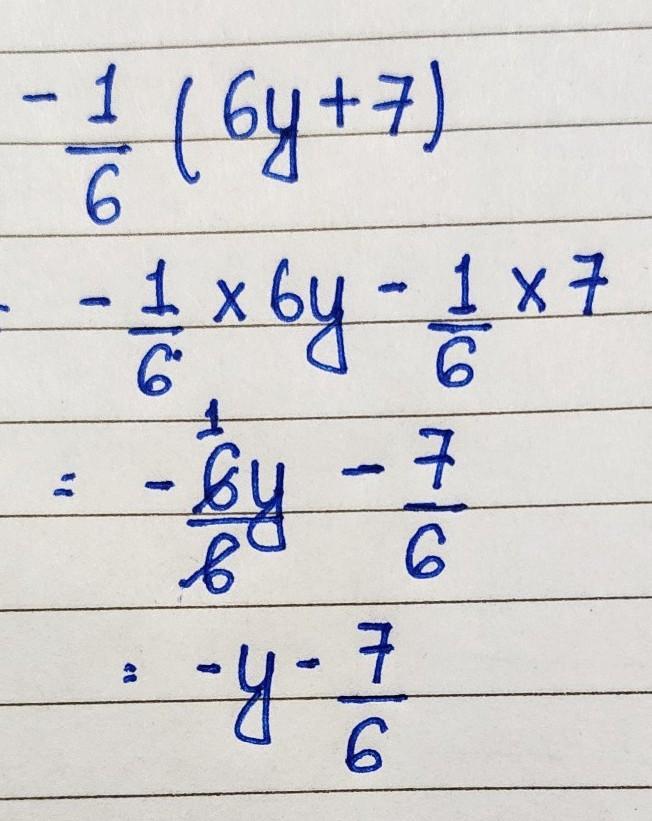 - 1/6 (6y+7)
- - 1/6 × 6y - 1/6 × 7
= - 6y/6 1 - 7/6
= -y - 7/6